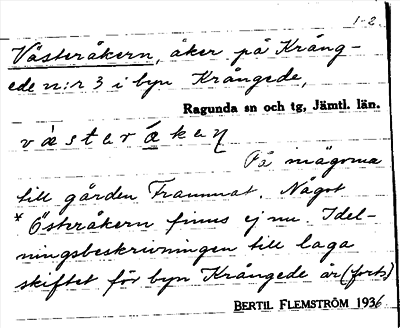 1-2.
Västeråkern, åker på Krång-
ede n:r 3 i byn Krångede,
Ragunda sn och tg, Jämtl. län.
västeråkaɳ
På inägorna
till gården Frammat. Något
* Österåkern finns ej nu. I del-
ningsbeskrivningen till laga
skiftet för byn Krångede är (forts)
BERTIL FLEMSTRÖM 1936